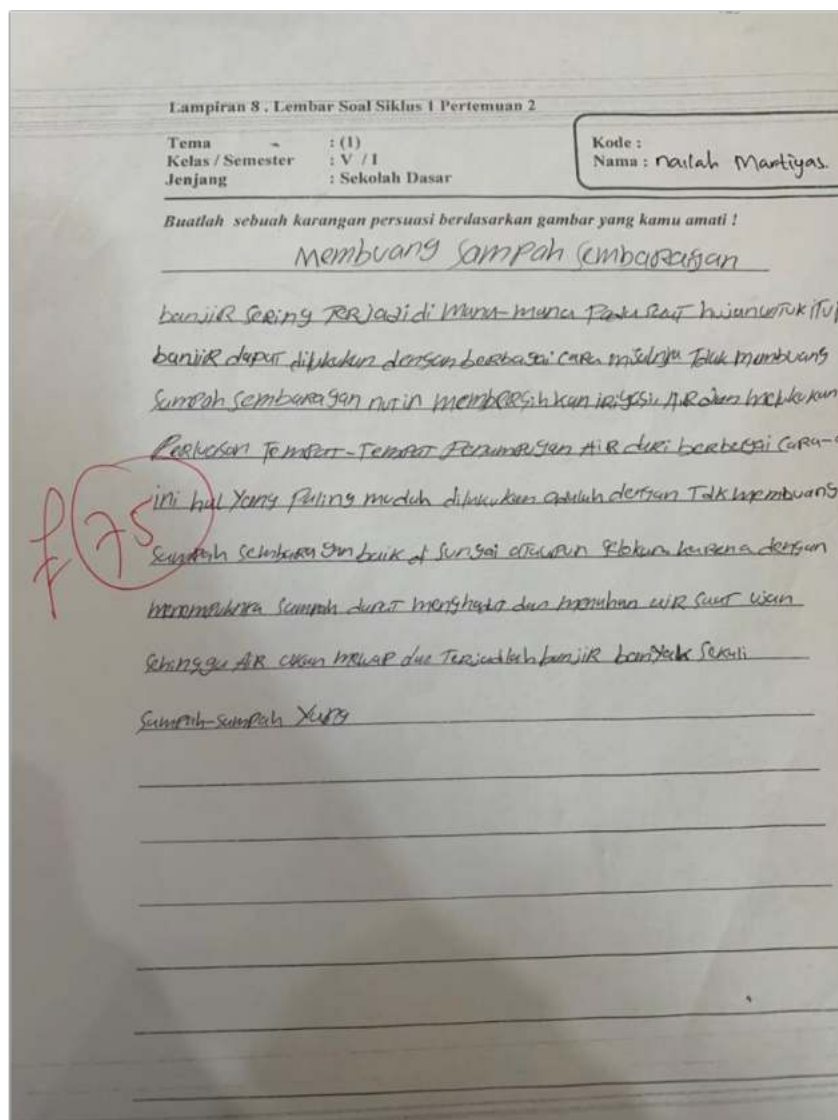 Lampiran 8 . Lembar Soal Siklus 1 Pertemuan 2
Tema : (1)
Kelas / Semester : V / I
Jenjang : Sekolah Dasar
Kode :
Nama : nailah Martiyas.
Buatlah sebuah karangan persuasi berdasarkan gambar yang kamu amati !
Membuang Sampah Sembaragan
banjiR seRing TeRJadi di Mana-mana Pada saat hujan unTuk iTu
banjiR dapaT dilakukan dengan beRbagai caRa misalnya Tidak membuang
Sampah Sembaragan rutin membeRsihkan irigasi AiR dan melakukan
PeRluasan TemPaT-TemPaT Penampungan AiR daRi beRbagai CaRa-
ini hal Yang Paling mudah dilakukan adalah dengan Tdk membuang
75
Sampah Sembaragan baik di Sungai aTauPun selokan kaRena dengan
Sampah dan menahan aiR saaT ujan
Sehingga AiR akan dan TeRjadilah banjiR banYak Sekali
Sampah-SamPah Yang